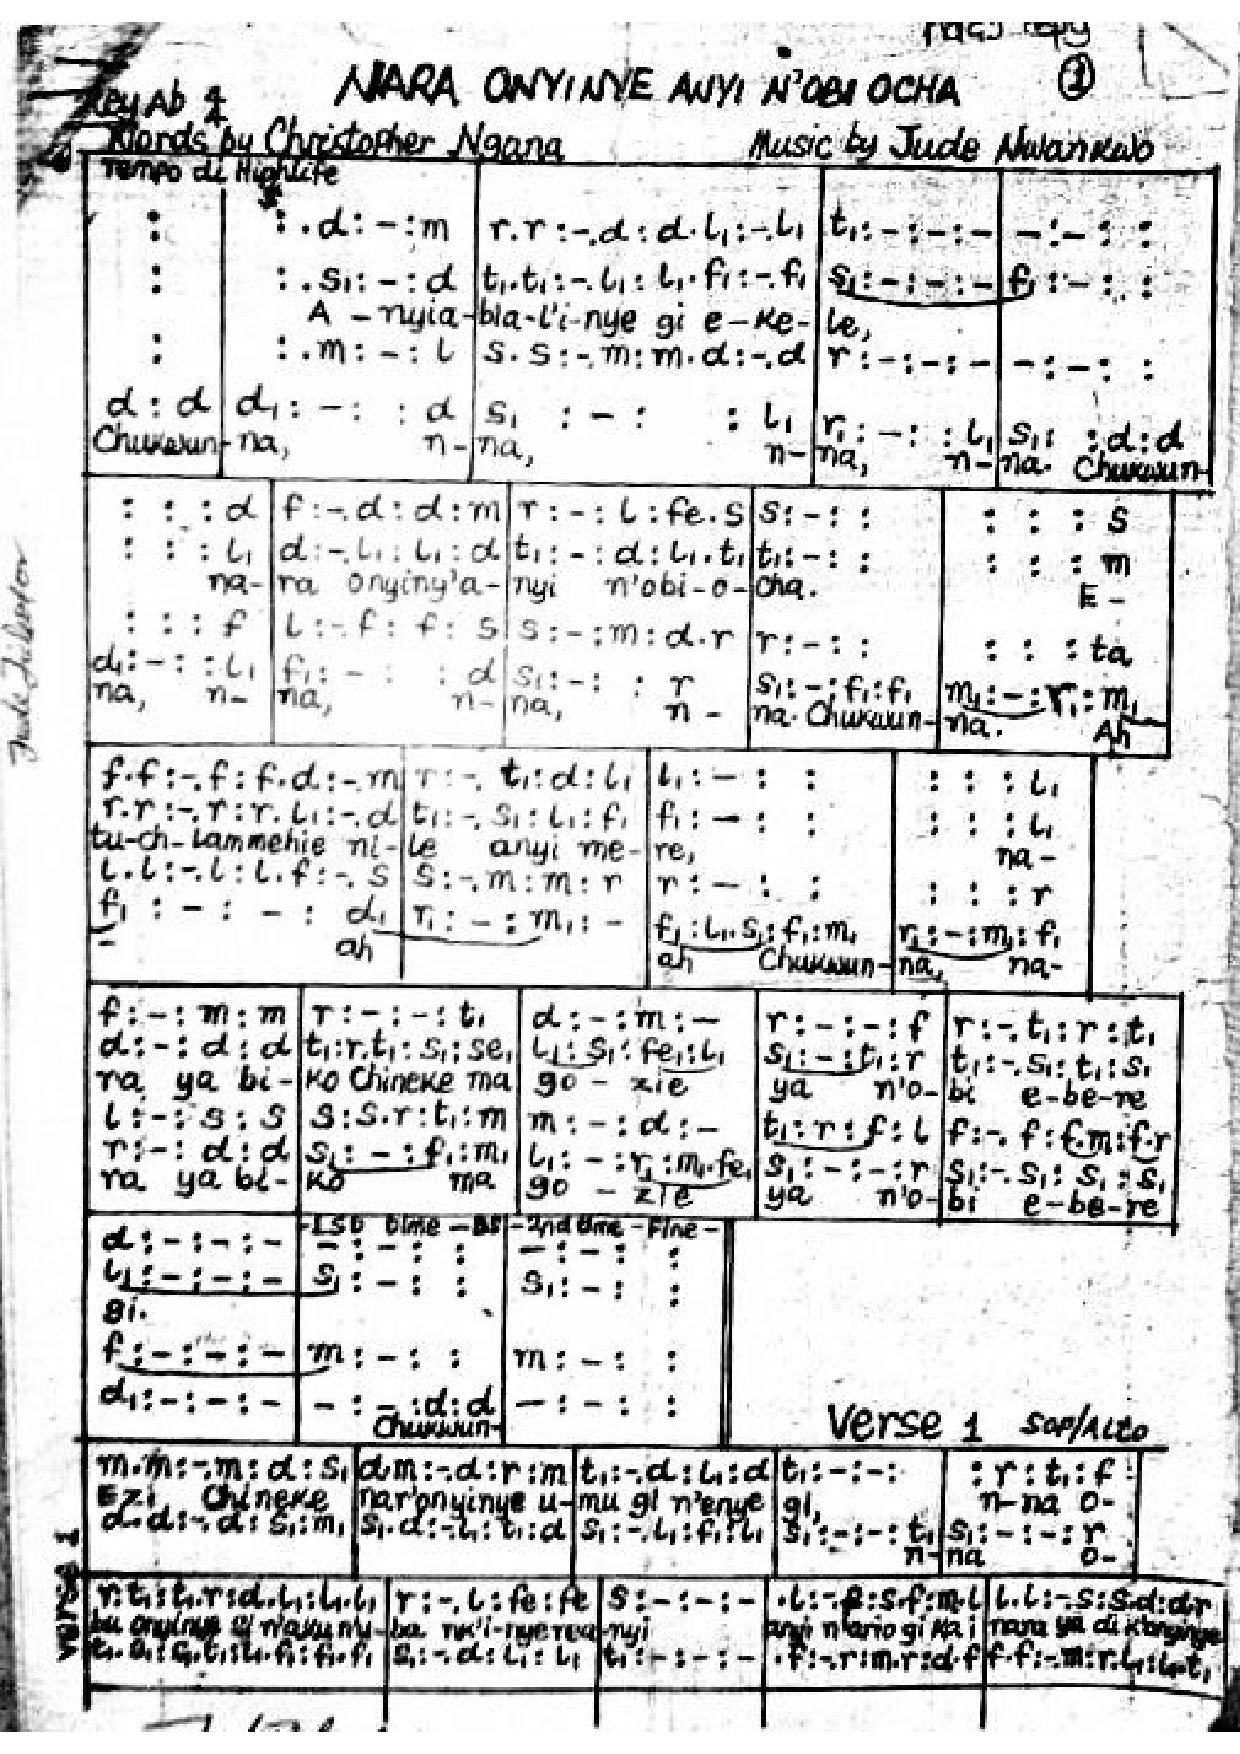 ①
NARA ONYINYE ANYI N'OBI OCHA
Key Ab 4/4
Words by Christopher Ngana Music by Jude Nwankwo
Tempo di Highlife
: | : .d:-:m | r.r:-.d:d.l₁:-.l₁ | t₁:-:-:- | -:-: :
: | : .s₁:-:d | t₁.t₁:-.l₁:l₁.f₁:-.f₁ | s₁:-:-:- | f₁:-: :
A-nyia-bla-l'i-nye gi e-ke-le,
: | : .m:-:l | s.s:-.m:m.d:-.d | r:-:-:- | -:-: :
d:d | d₁:-: :d | s₁ :-: :l₁ | r₁:-: :l₁ | s₁: :d:d
Chukwun-na, n-na, n-na, n-na. Chukwun-
: : :d | f:-.d:d:m | r:-:l:fe.s | s:-: : | : : :s
: : :l₁ | d:-.l₁:l₁:d | t₁:-:d:l₁.t₁ | t₁:-: : | : : :m
na-ra onyiny'a-nyi n'obi-o-cha. E-
: : :f | l:-.f:f:s | s:-:m:d.r | r:-: : | : : :ta
d₁:-: :l₁ | f₁:-: :d | s₁:-: :r | s₁:-:f₁:f₁ | m₁:-:r₁:m₁
na, n-na, n-na, n-na. Chukwun-na. Ah
f.f:-.f:f.d:-.m | r:-.t₁:d:l₁ | l₁:-: : | : : :l₁
r.r:-.r:r.l₁:-.d | t₁:-.s₁:l₁:f₁ | f₁:-: : | : : :l₁
tu-ch-lammehie ni-le anyi me-re, na-
l.l:-.l:l.f:-.s | s:-.m:m:r | r:-: : | : : :r
f₁:-:-:d₁ | r₁:-:m₁:- | f₁:l₁.s₁:f₁:m₁ | r₁:-:m₁:f₁
- ah ah Chukwun-na, na-
f:-:m:m | r:-:-:t₁ | d:-:m:- | r:-:-:f | r:-.t₁:r:t₁
d:-:d:d | t₁:r.t₁:s₁:se₁ | l₁:s₁:fe₁:l₁ | s₁:-:t₁:r | t₁:-.s₁:t₁:s₁
ra ya bi-ko Chineke ma go-zie ya n'o-bi e-be-re
l:-:s:s | s:s.r:t₁:m | m:-:d:- | t₁:r:f:l | f:-.f:f.m:f.r
r:-:d:d | s₁:-:f₁:m₁ | l₁:-:r₁:m₁.fe₁ | s₁:-:-:r | s₁:-.s₁:s₁:s₁
ra ya bi-ko ma go-zie ya n'o-bi e-be-re
-1st time-DS|-2nd time-Fine-
d:-:-:- | -:-: : | -:-: :
l₁:-:-:- | s₁:-: : | s₁:-: :
gi.
f:-:-:- | m:-: : | m:-: :
d₁:-:-:- | -:-:d:d | -:-: :
Chukwun-
Verse 1 SOP/ALTO
m.m:-.m:d:s₁ | d.m:-.d:r:m | t₁:-.d:l₁:d | t₁:-:-: | :r:t₁:f
Ezi Chineke nar'onyinye u-mu gi n'enye gi, n-na o-
d.d:-.d:s₁:m₁ | s₁.d:-.l₁:t₁:d | s₁:-.l₁:f₁:l₁ | s₁:-:-:t₁ | s₁:-:-:r
n-na o-
verse 1
r.t₁:t₁.r:d.l₁:l₁.l₁ | r:-.l:fe:fe | s:-:-:- | .l:-.s:s.f:m.l | l.l:-.s:s.d:d.r
bu onyinye anyi n'ario gi ka i nara ya di
s₁:-.d:l₁:l₁ | t₁:-:-:- | .f:-.r:m.r:d.f | f.f:-.m:r.l₁:l₁.t₁